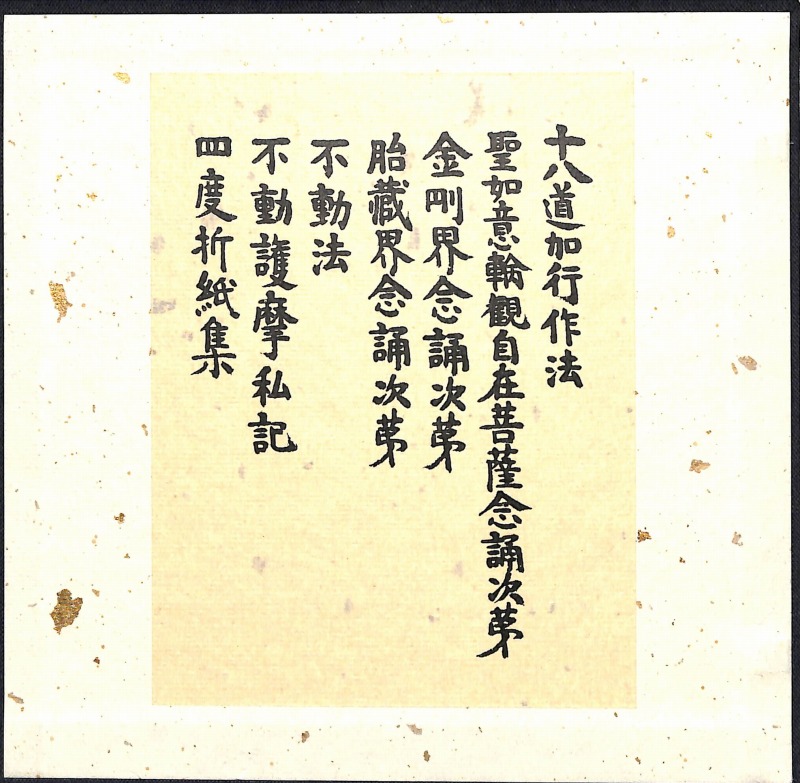 十八道加行作法
聖如意輪觀自在菩薩念誦次苐
金剛界念誦次苐
胎藏界念誦次苐
不動法
不動護摩私記
四度折紙集